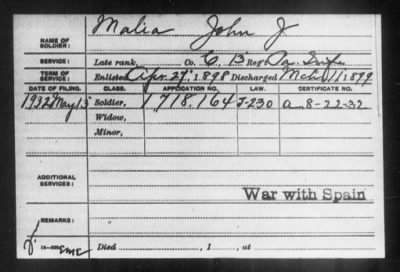 NAME OF SOLDIER: Malia John J
SERVICE: Late rank, Co. C, 13 Reg't Pa. Inf.
TERM OF SERVICE: Enlisted Apr. 27, 1898 Discharged Mch. 11 1899
DATE OF FILING. CLASS. APPLICATION NO. LAW. CERTIFICATE NO.
1932 May 13 Soldier, 1718,164 J-230 a 8-22-32
Widow,
Minor,
ADDITIONAL SERVICES:
War with Spain
REMARKS:
Died , 1 , at